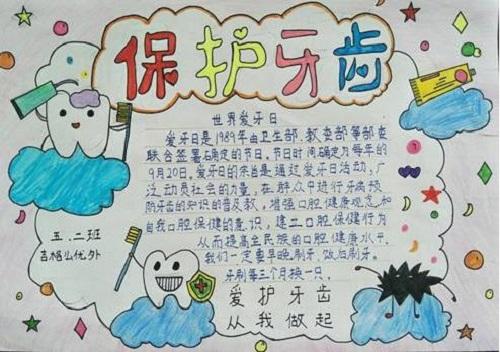 保护牙齿
世界爱牙日
爱牙日是1989年由卫生部、教委部等部委
联合签署确定的节日,节日时间确定为每年的
9月20日。爱牙日的宗旨是通过爱牙日活动,广
泛动员社会的力量,在群众中进行牙病预
防牙齿的知识的普及教,增强口腔健康观念和
自我口腔保健的意识,建立口腔保健行为
从而提高全民族的口腔健康水平。
我们一定要早晚刷牙,饭后刷牙。
牙刷每三个月换一只。
五.二班
爱护牙齿
从我做起